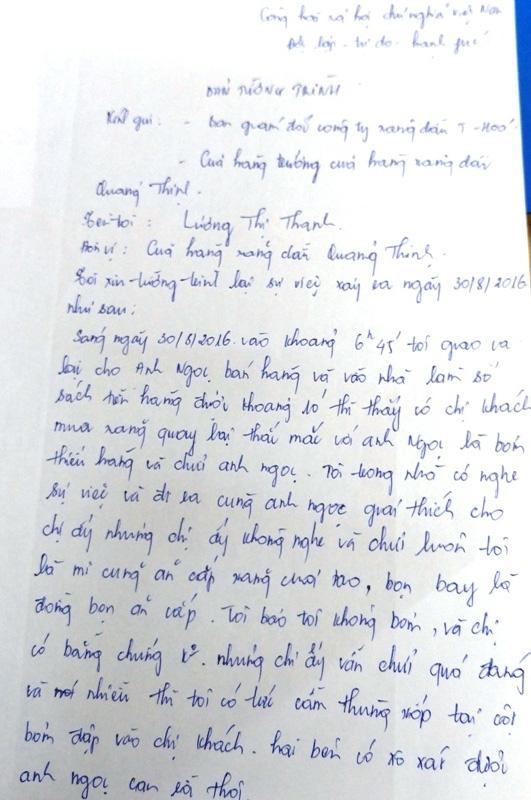 Cộng hòa xã hội chủ nghĩa Việt Nam
Độc lập - tự do - hạnh phúc
ĐƠN TƯỜNG TRÌNH
Kính gửi: - Ban giám đốc công ty xăng dầu T-Hoá
- Cửa hàng trưởng cửa hàng xăng dầu
Quảng Thịnh.
Tên tôi: Lương Thị Thanh.
Đơn vị: Cửa hàng xăng dầu Quảng Thịnh.
Tôi xin tường trình lại sự việc xảy ra ngày 30/8/2016
như sau:
Sáng ngày 30/8/2016. vào khoảng 6h45' tôi giao ca
lại cho Anh Ngọc bán hàng và vào nhà làm sổ
sách tiền hàng được khoảng 10' thì thấy có chị khách
mua xăng quay lại thắc mắc với anh Ngọc là bơm
thiếu hàng và chửi anh ngọc. Tôi trong nhà có nghe
sự việc và đi ra cùng anh ngọc giải thích cho
chị ấy nhưng chị ấy không nghe và chửi luôn tôi
là mi cũng ăn cắp xăng của tao, bọn bay là
đồng bọn ăn cắp. Tôi bảo tôi không bơm, và chị
có bằng chứng ko. nhưng chị ấy vẫn chửi quá đáng
và nhiều thì tôi có tức cầm thùng xốp tại cột
bơm đập vào chị khách. hai bên có xô xát được
anh ngọc can rồi thôi.